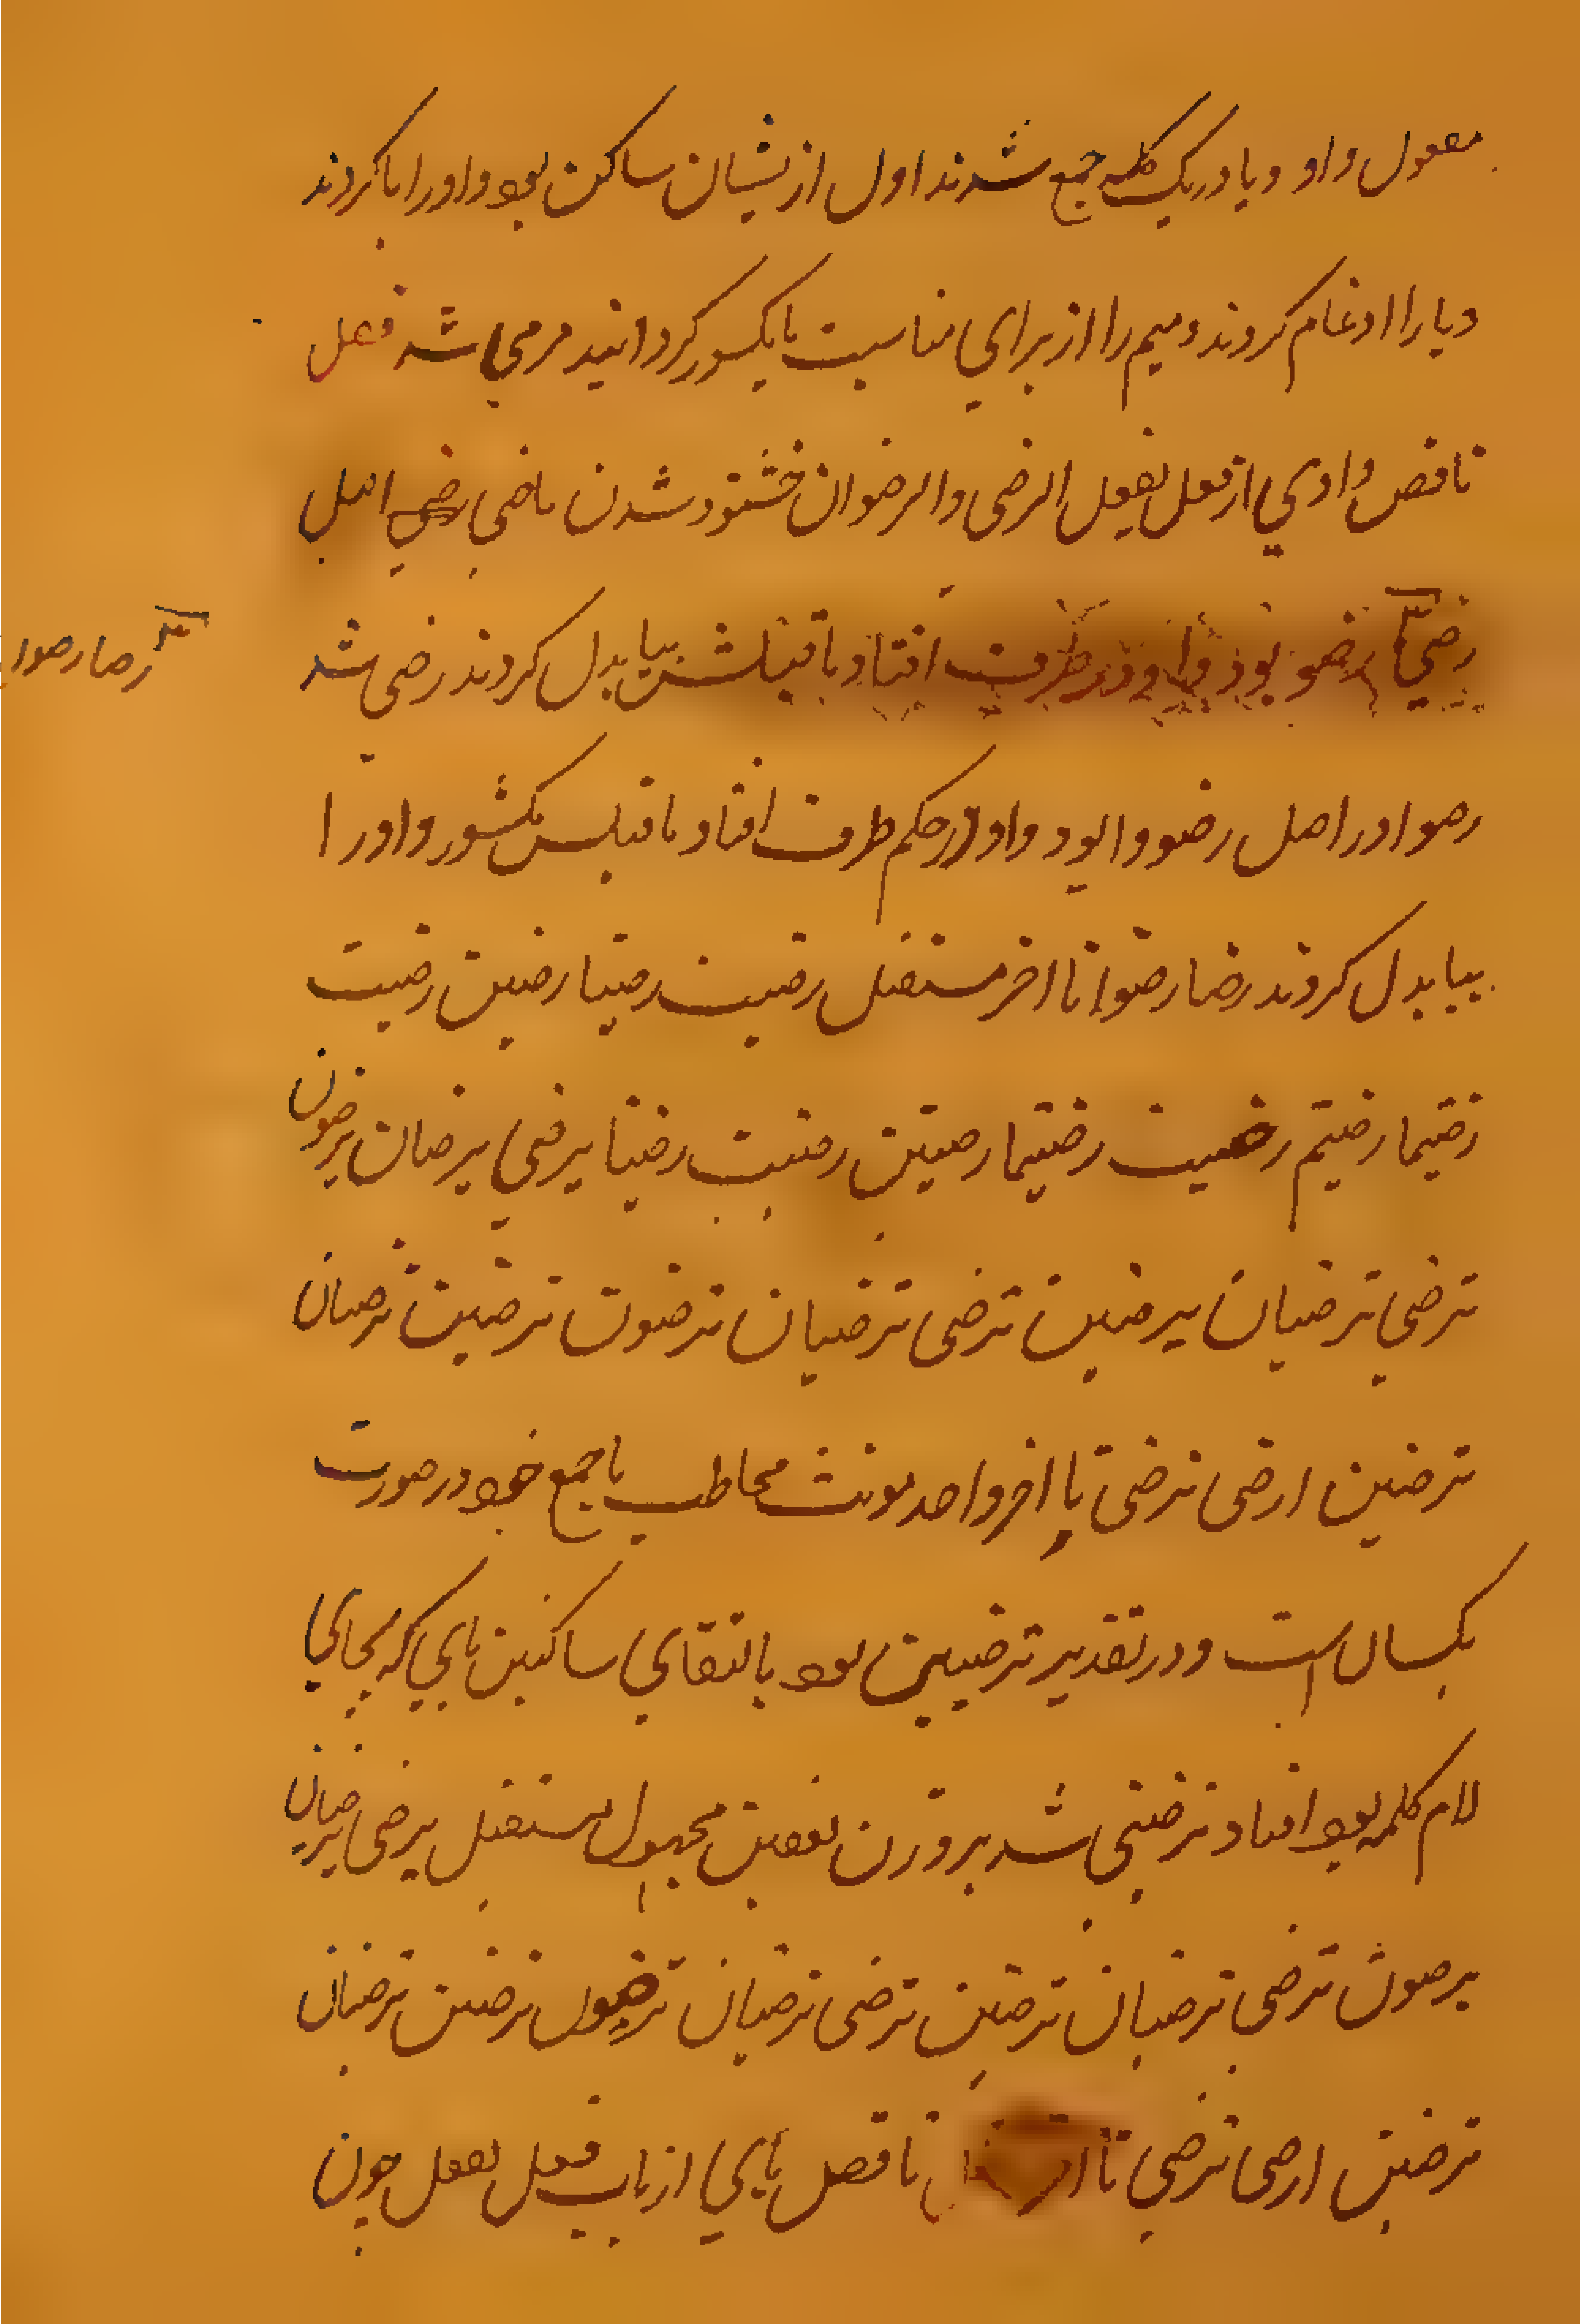 مفعول واو و یا در یک کلمه جمع شدند اول ازیشان ساکن بود واو را یا کردند
و یا را ادغام کردند و میم را از برای مناسبت یا مکسور کردانید مرمی شد فعل
ناقص واوی از فعل یفعل الرضی والرضوان خشنود شدن ماضی رضی اصل
رضی رضو بود واو در طرف افتاد و ماقبلش بیا بدل کردند رضی شد
رضا رضوا
رضوا در اصل رضووا بود واو در حکم طرف افتاد ماقبلش مکسور واو را
بیا بدل کردند رضا رضوا تا اخر مستقبل رضیت رضیتا رضین رضیت
رضیتما رضیتم رضیت رضیتما رضیتن رضیت رضینا یرضی یرضان یرضون
ترضی ترضیان یرضین ترضی ترضیان ترضون ترضین ترضیان
ترضین ارضی نرضی تا اخر واحد مونث مخاطب با جمع خود در صورت
یکسان است و در تقدیر ترضیین بود بالتقای ساکنین یایی که بجای
لام کلمه بود افتاد ترضین شد بر وزن تفعین مجهول مستقبل یرضی یرضیان
یرضون ترضی ترضیان ترضین ترضی ترضیان ترضون ترضین ترضیان
ترضین ارضی نرضی تا اخر ناقص یایی از باب فعل یفعل چون